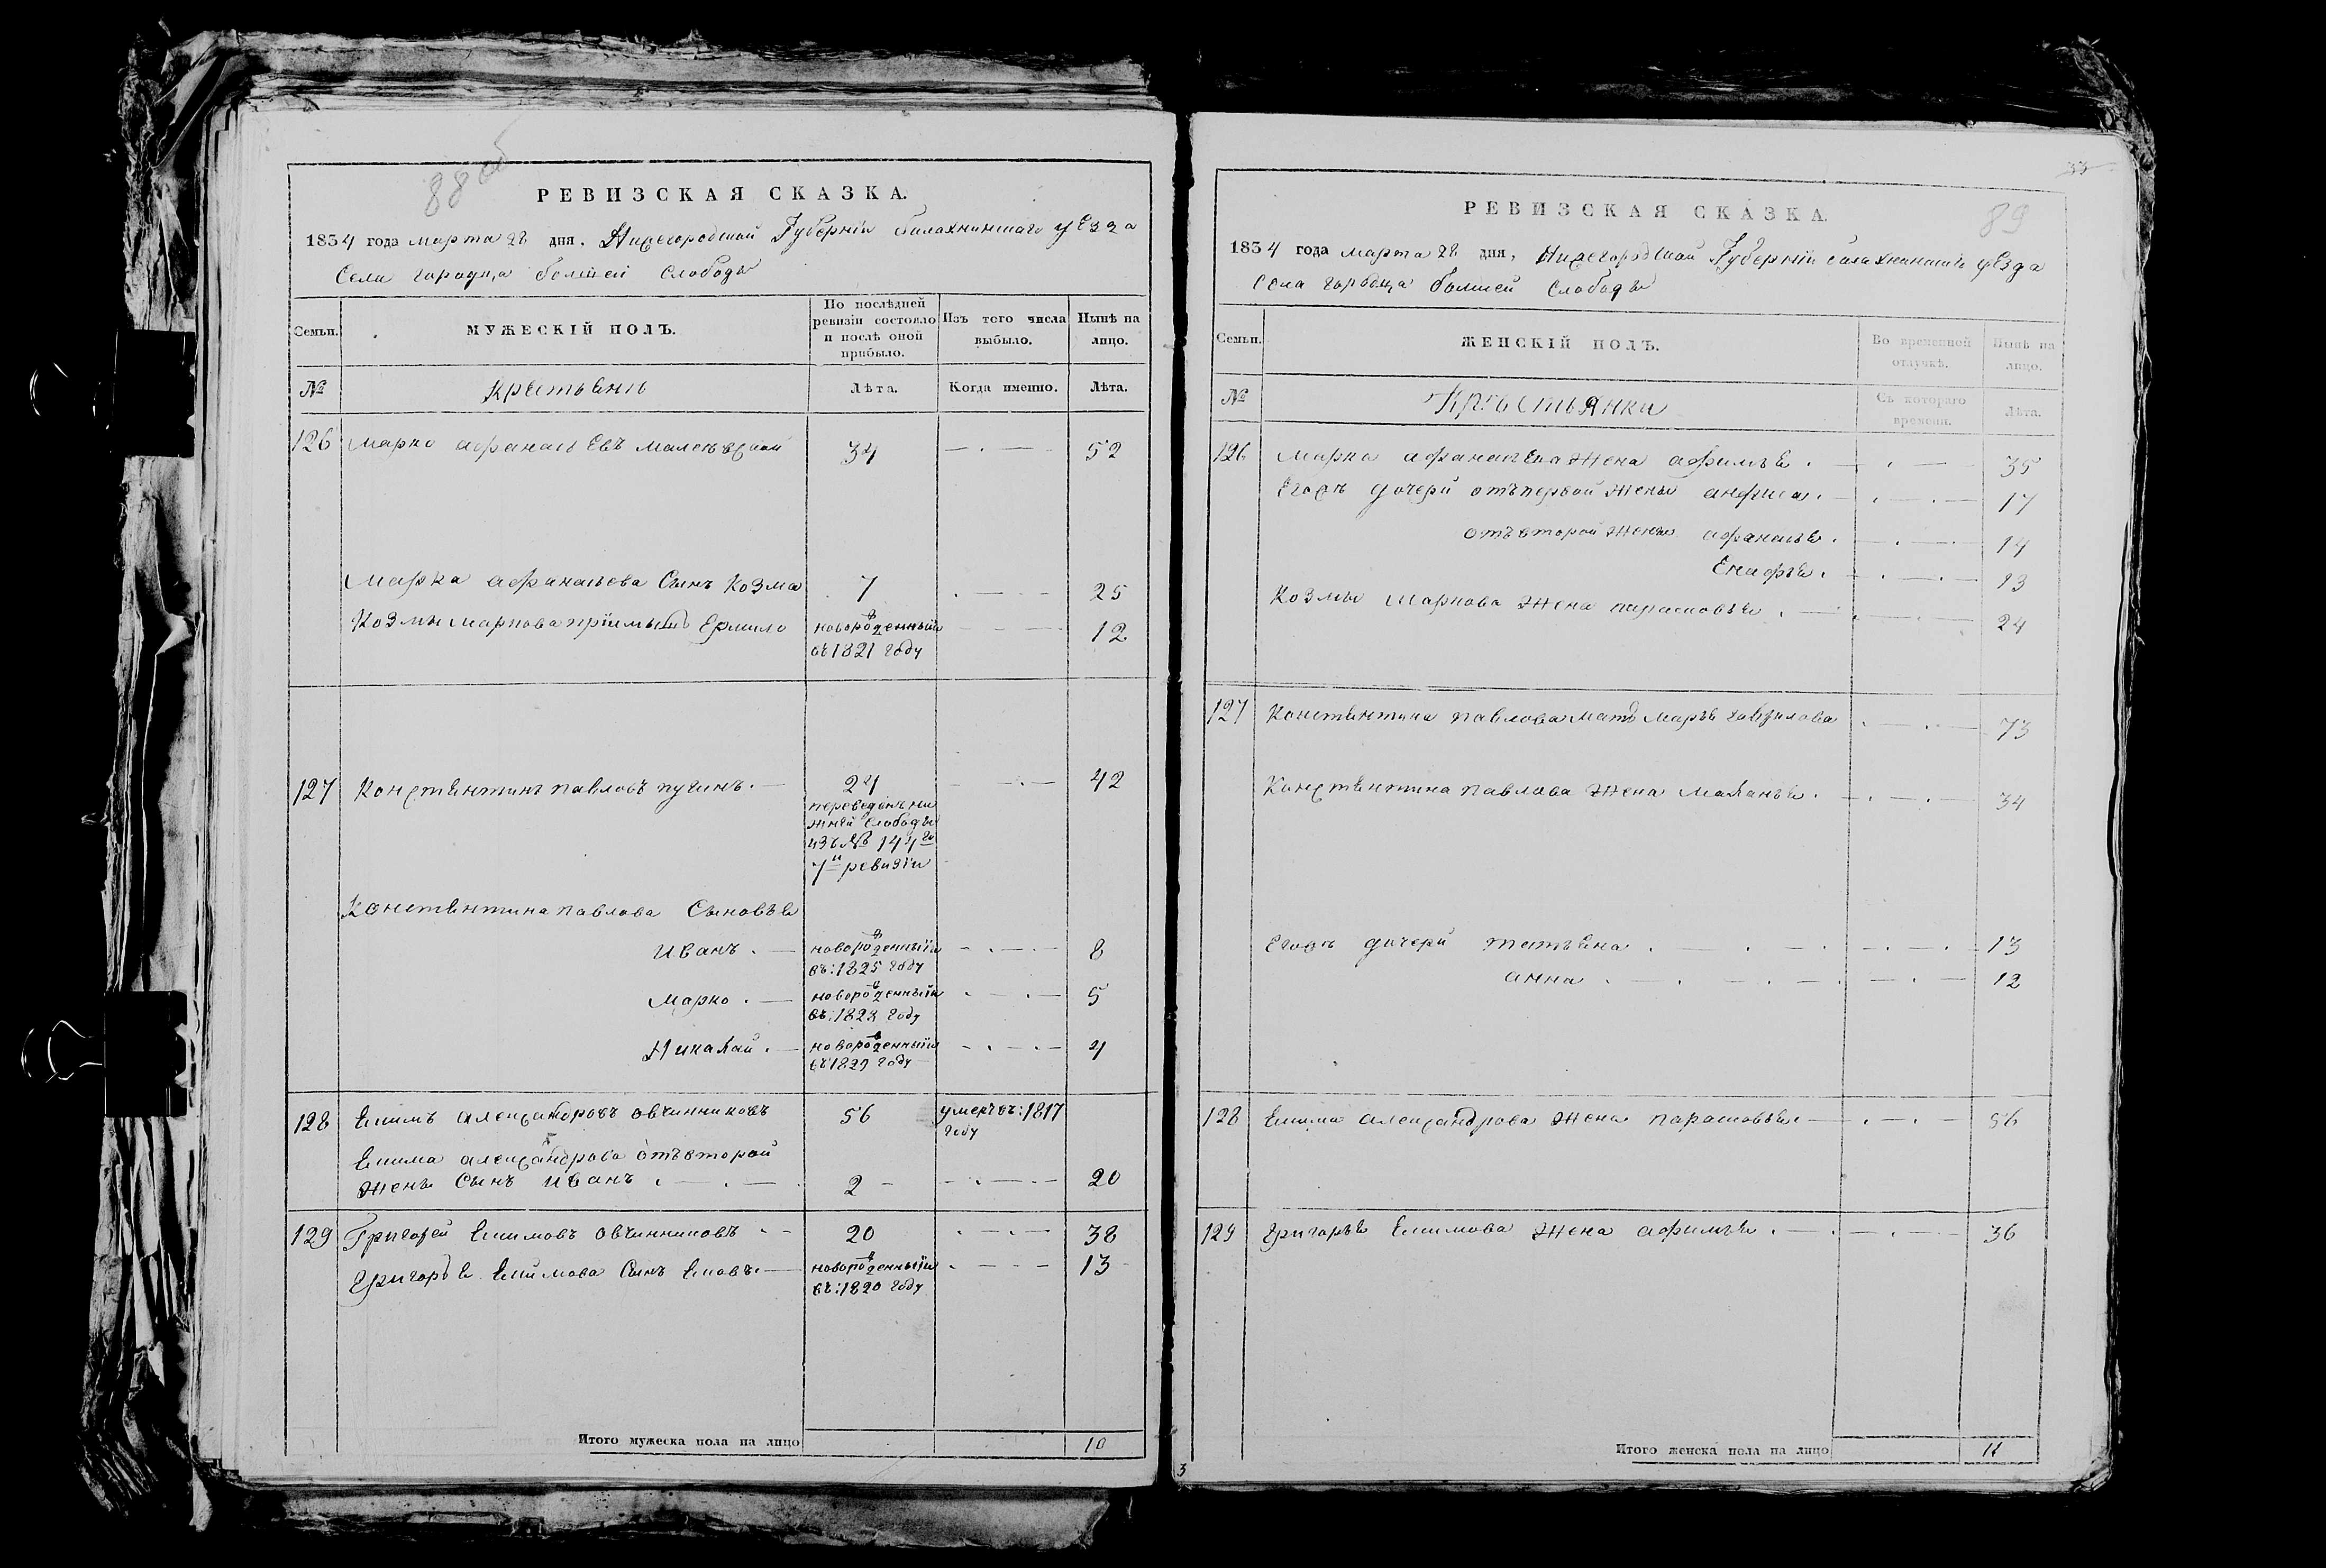 88 об
РЕВИЗСКАЯ СКАЗКА.
1834 года марта 28 дня. Нижегородской Губерніи балахнинскаго уезда
Села городца болшей слободы
Семьи.
МУЖЕСКІЙ ПОЛЪ.
По послѣдней ревизіи состояло и послѣ оной прибыло.
Изъ того числа выбыло.
Нынѣ на лицо.
№
Крестьяне
Лѣта.
Когда именно.
Лѣта.
126 Марко афанасьевъ 34 52
Марка афанасьева Сынъ Козма 7 25
Козмы Маркова пріимышъ Ермило новорожденный 12
въ 1821 году
127 Констянтинъ павловъ пугинъ. 24 42
переведенъ ни
жней слободы
изъ № 144го
7й ревизіи
Констянтина павлова Сыновья
Иванъ. новорожденный 8
въ: 1825 году
Марко. новорожденный 5
въ: 1828 году
Николай. новорожденный 4
въ 1829 году
128 Екимъ александровъ овчинниковъ 56 умеръ въ: 1817
году
Екима александрова отъ второй
жены Сынъ Иванъ. 2 20
129 Григорей Екимовъ овчинниковъ 20 38
Григорья Екимова Сынъ Яковъ. новорожденный 13
въ: 1820 году
Итого мужеска пола на лицо 10
33
89
РЕВИЗСКАЯ СКАЗКА.
1834 года марта 28 дня, Нижегородской Губерніи балахнинскаго уезда
Села городца болшей слободы
Семьи.
ЖЕНСКІЙ ПОЛЪ.
Во временной отлучкѣ.
Нынѣ на лицо.
№
Крестьянки
Съ котораго времени.
Лѣта.
126 Марка афанасьева жена афимья. 35
Егожъ дочери отъ первой жены анфиса. 17
отъ второй жены афанасья. 14
Енафья. 13
Козмы Маркова жена парасковья. 24
127 Констянтина павлова мать Марья гаврилова 73
Констянтина павлова жена Маланья. 34
Егожъ дочери татьяна. 13
анна. 12
128 Екима александрова жена парасковья. 56
129 Григорья Екимова жена афимья. 36
Итого женска пола на лицо 11
3